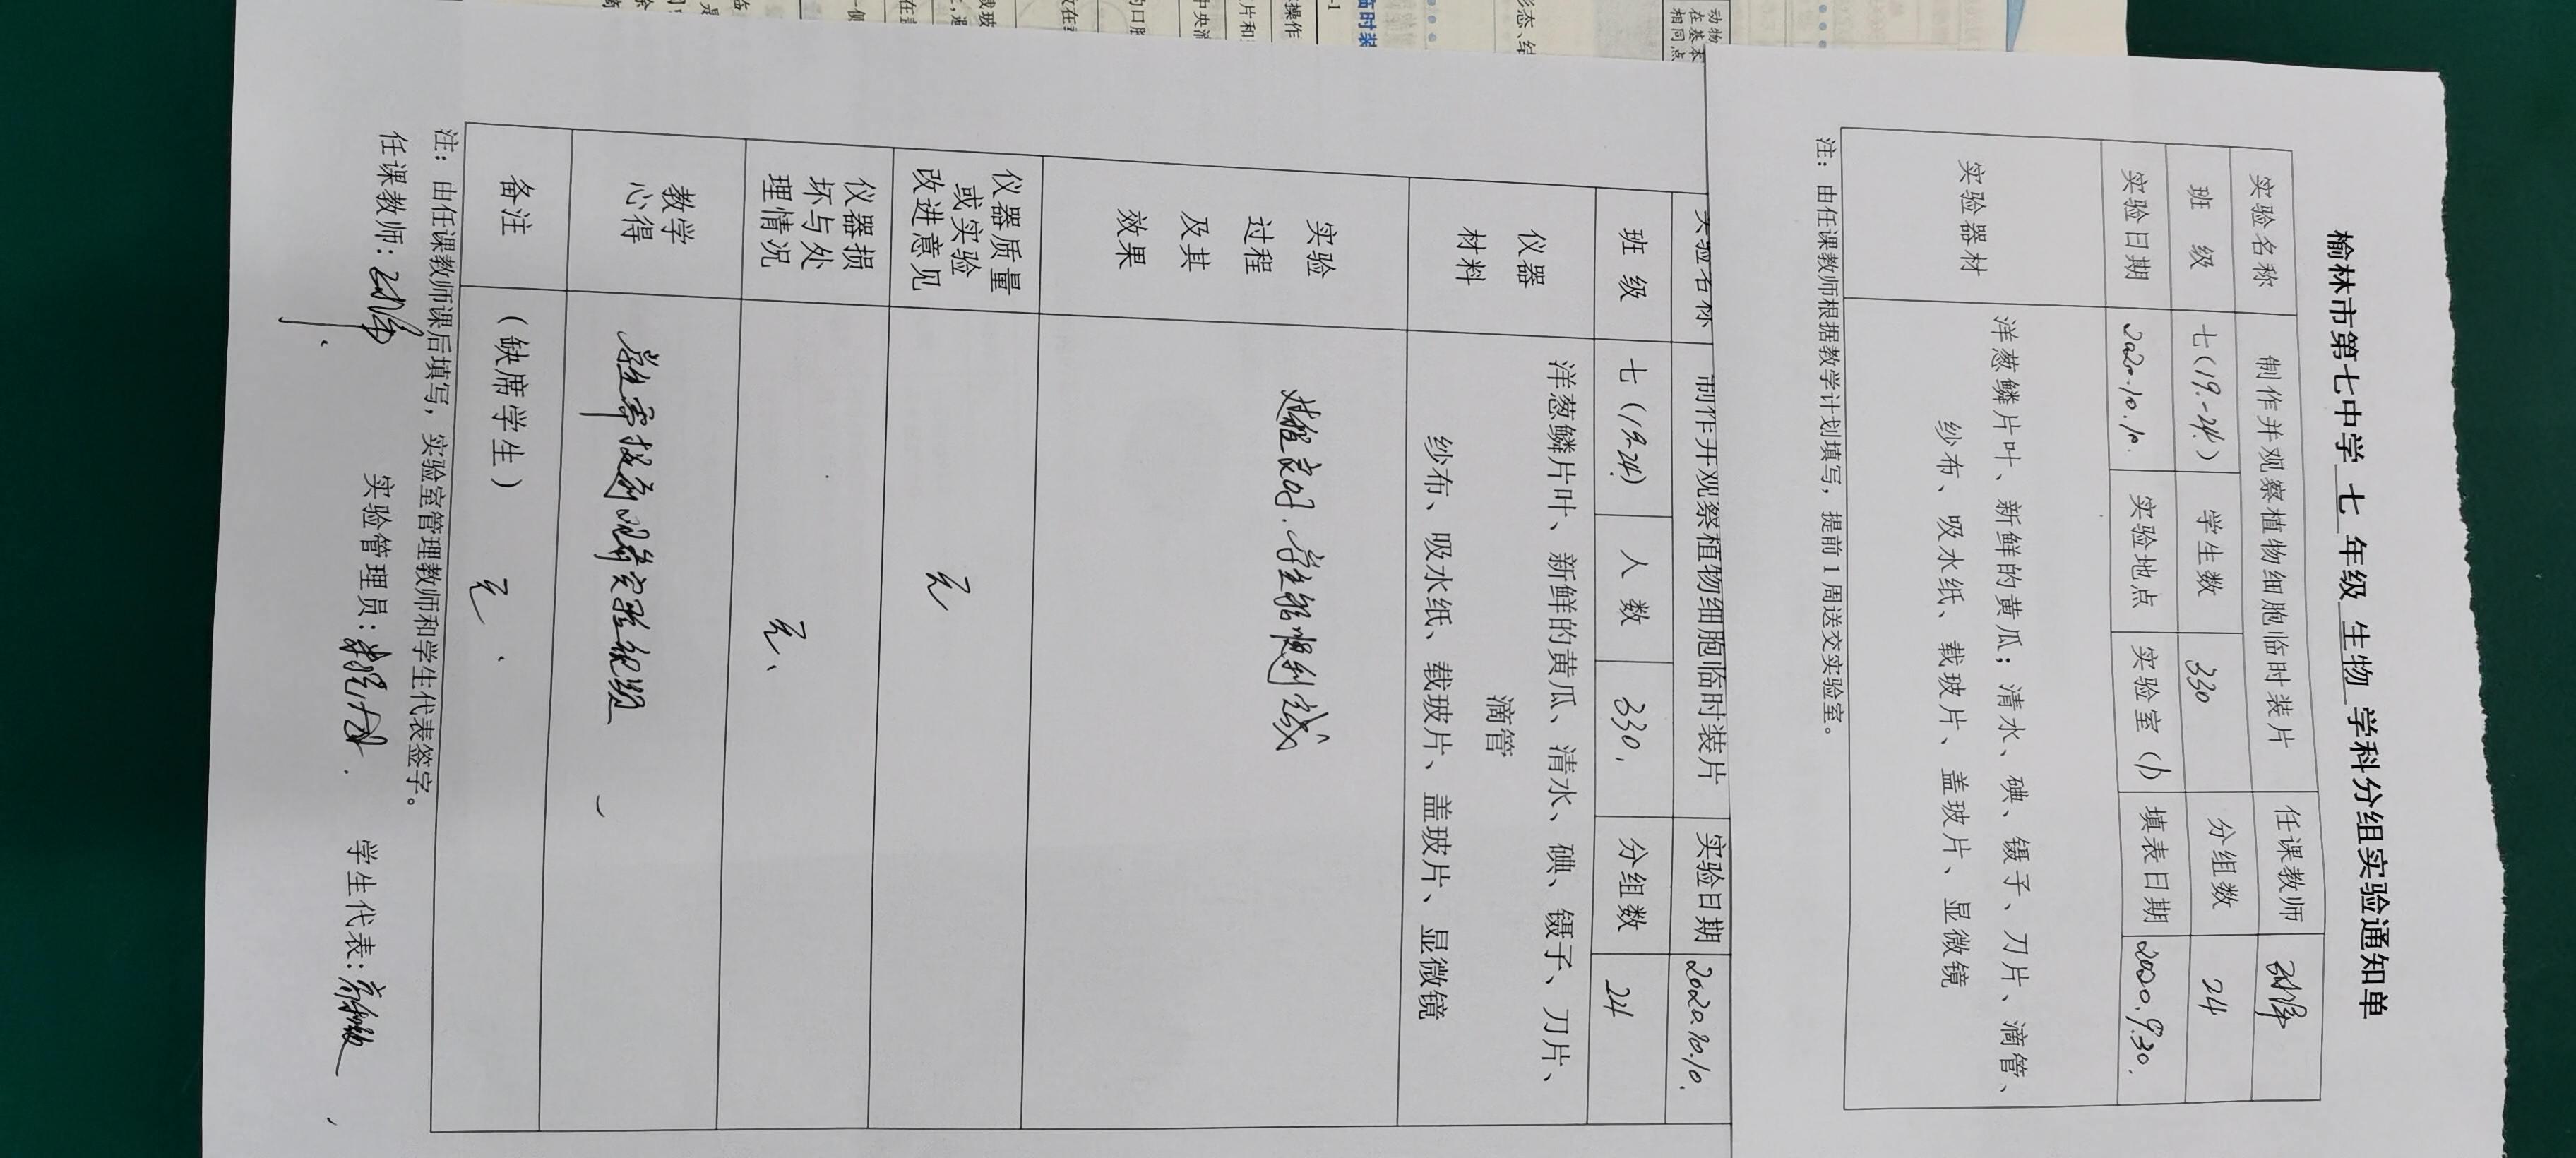 榆林市第七中学 七 年级 生物 学科分组实验通知单
实验名称 制作并观察植物细胞临时装片 任课教师
班 级 七(19-24) 学生数 330 分组数 24
实验日期 2020.10.10. 实验地点 实验室(1) 填表日期 2020.9.30.
实验器材
洋葱鳞片叶、新鲜的黄瓜；清水、碘、镊子、刀片、滴管、
纱布、吸水纸、载玻片、盖玻片、显微镜
注：由任课教师根据教学计划填写，提前1周送交实验室。
实验名称 制作并观察植物细胞临时装片 实验日期 2020.10.10.
班 级 七(19-24) 人 数 330. 分组数 24
仪器
材料
洋葱鳞片叶、新鲜的黄瓜、清水、碘、镊子、刀片、
滴管
纱布、吸水纸、载玻片、盖玻片、显微镜
实验
过程
及其
效果
过程良好.学生能顺利完成
仪器质量
或实验
改进意见
无
仪器损
坏与处
理情况
无、
教学
心得
学生需提前观看实验视频
备注 (缺席学生) 无.
注：由任课教师课后填写，实验室管理教师和学生代表签字。
任课教师: 实验管理员: 学生代表:
临时装
形态、结
动物
在基本
相同点
操作